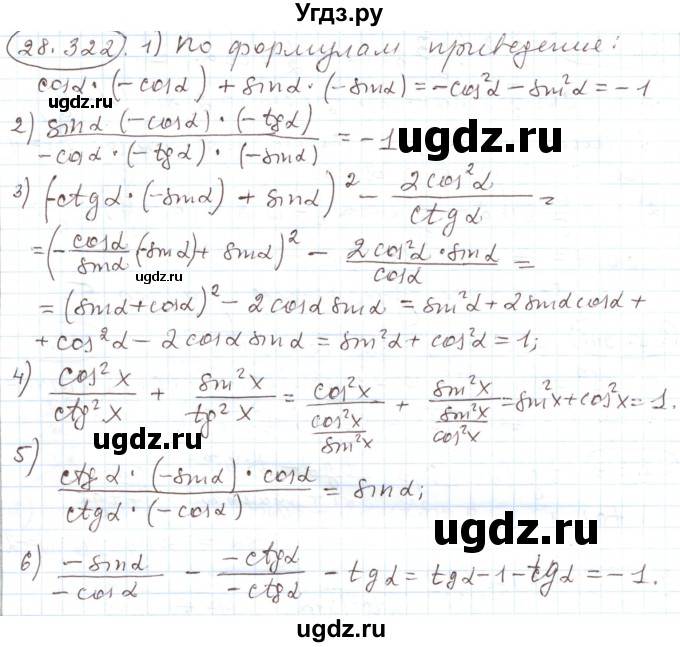 Угдз.ру
(28.322). 1) По формулам приведение:
cosα · (−cosα) + sinα · (−sinα) = −cos²α − sin²α = −1
ugdz.ru
ugdz.ru
2) sinα · (−cosα) · (−tgα) / −cosα · (−tgα) · (−sinα) = −1
ugdz.ru
3) (−ctgα · (−sinα) + sinα)² − 2cos²α / ctgα =
= (−cosα / sinα (−sinα) + sinα)² − 2cos²α · sinα / cosα =
ugdz.ru
= (sinα + cosα)² − 2cosα sinα = sin²α + 2sinα cosα +
+ cos²α − 2cosα sinα = sin²α + cos²α = 1;
ugdz.ru
4) cos²x / ctg²x + sin²x / tg²x = cos²x / (cos²x / sin²x) + sin²x / (sin²x / cos²x) = sin²x + cos²x = 1.
ugdz.ru
5) ctgα · (−sinα) · cosα / ctgα · (−cosα) = sinα;
ugdz.ru
ugdz.ru
6) −sinα / −cosα − −ctgα / −ctgα − tgα = tgα − 1 − tgα = −1.
ugdz.ru
ugdz.ru